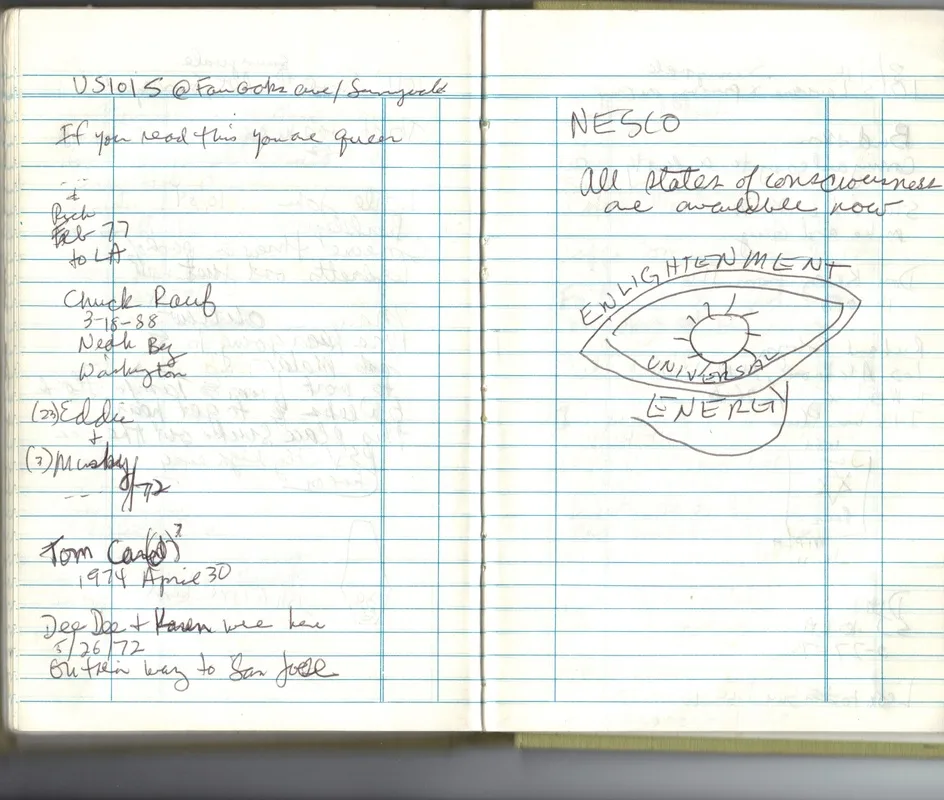 US101 S @ Fair Oaks ave / Sunnyvale
If you read this you are queer
Feb 77
to LA
Chuck Rauf
3-18-88
Neah Bay
Washington
(23) Eddie
+
(?) Musky
9/72
Tom
1974 April 30
Dee Dee + Karen were here
5/26/72
On their way to San Jose
NESCO
All states of consciousness
are available now
ENLIGHTENMENT
UNIVERSAL
ENERGY